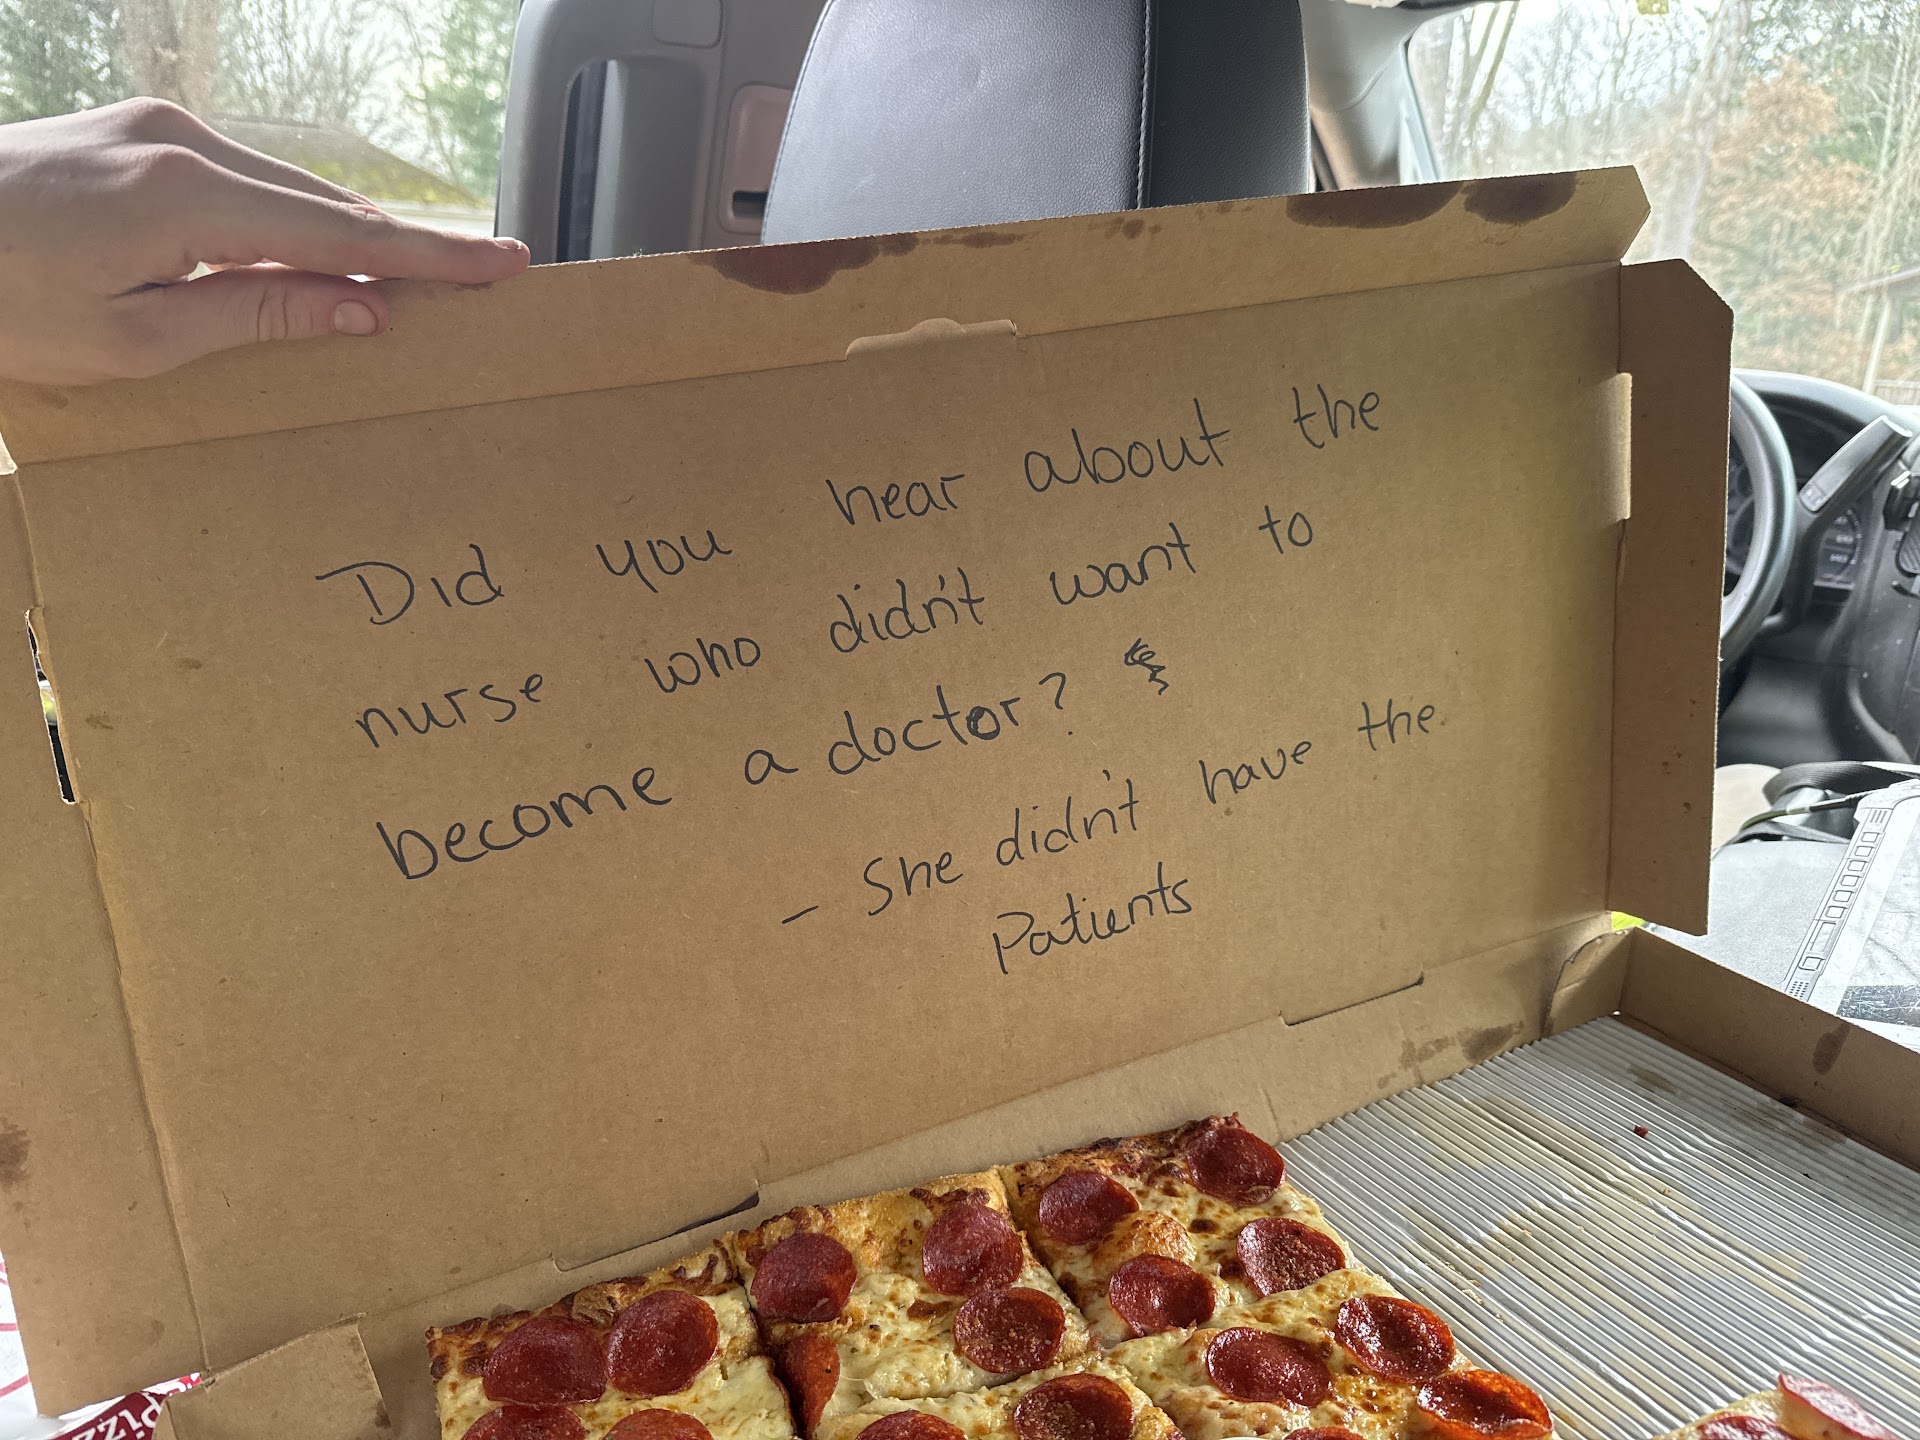 Did you hear about the
nurse who didn't want to
become a doctor?
- She didn't have the
Patients